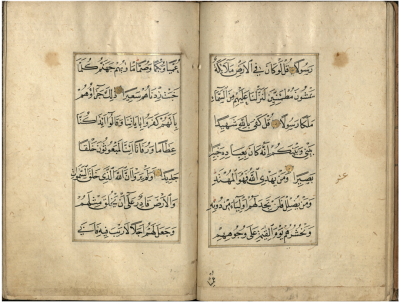 رَسُولًا قُل لَّوْ كَانَ فِي الْأَرْضِ مَلَائِكَةٌ
يَمْشُونَ مُطْمَئِنِّينَ لَنَزَّلْنَا عَلَيْهِم مِّنَ السَّمَاءِ
مَلَكًا رَّسُولًا قُلْ كَفَى بِاللَّهِ شَهِيدًا
بَيْنِي وَبَيْنَكُمْ إِنَّهُ كَانَ بِعِبَادِهِ خَبِيرًا
بَصِيرًا وَمَن يَهْدِ اللَّهُ فَهُوَ الْمُهْتَدِ
وَمَن يُضْلِلْ فَلَن تَجِدَ لَهُمْ أَوْلِيَاءَ مِن دُونِهِ
وَنَحْشُرُهُمْ يَوْمَ الْقِيمَةِ عَلَى وُجُوهِهِمْ
عُمْيًا وَبُكْمًا وَصُمًّا مَأْوَيهُمْ جَهَنَّمُ كُلَّمَا
خَبَتْ زِدْنَاهُمْ سَعِيرًا ذَلِكَ جَزَاؤُهُمْ
بِأَنَّهُمْ كَفَرُوا بِآيَاتِنَا وَقَالُوا أَئِذَا كُنَّا
عِظَامًا وَرُفَاتًا أَئِنَّا لَمَبْعُوثُونَ خَلْقًا
جَدِيدًا أَوَلَمْ يَرَوْا أَنَّ اللَّهَ الَّذِي خَلَقَ السَّمَوَاتِ
وَالْأَرْضَ قَادِرٌ عَلَى أَن يَخْلُقَ مِثْلَهُمْ
وَجَعَلَ لَهُمْ أَجَلًا لَّا رَيْبَ فِيهِ فَأَبَى